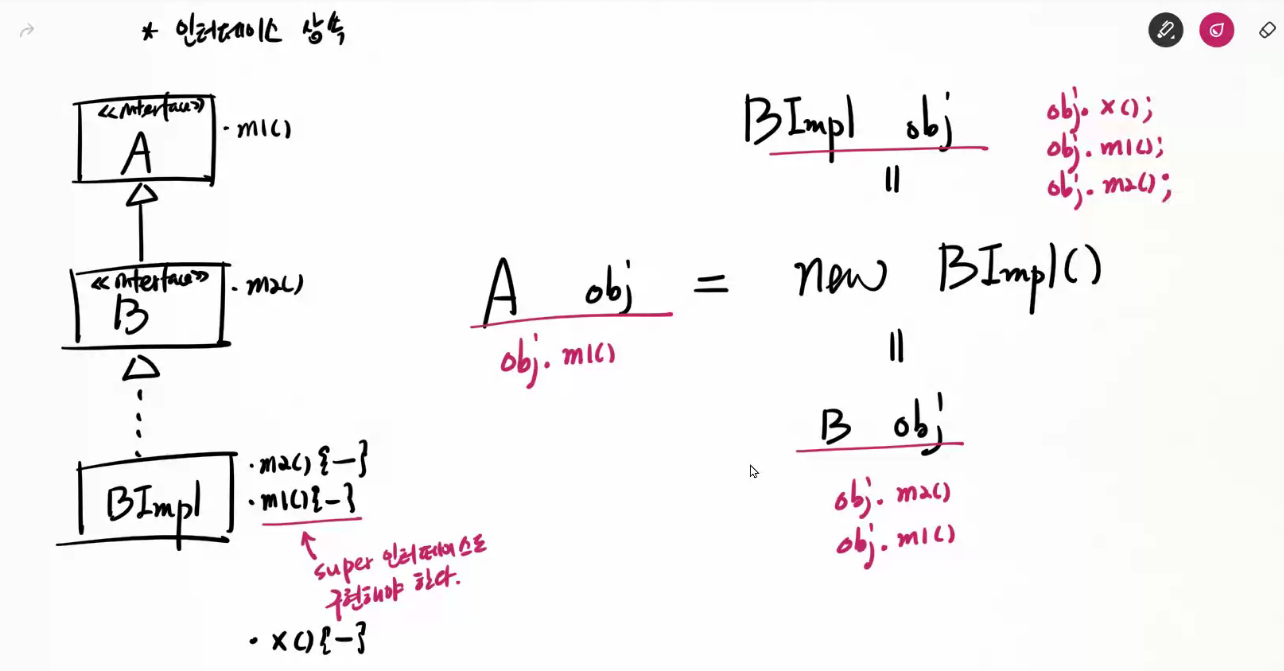 * 인터페이스 상속
<<interface>>
A
· m1()
<<interface>>
B
· m2()
BImpl
· m2(){—}
· m1(){—}
super 인터페이스도
구현해야 한다.
· x(){—}
BImpl obj
obj. x();
obj. m1();
obj. m2();
=
A obj = new BImpl()
obj. m1()
=
B obj
obj. m2()
obj. m1()